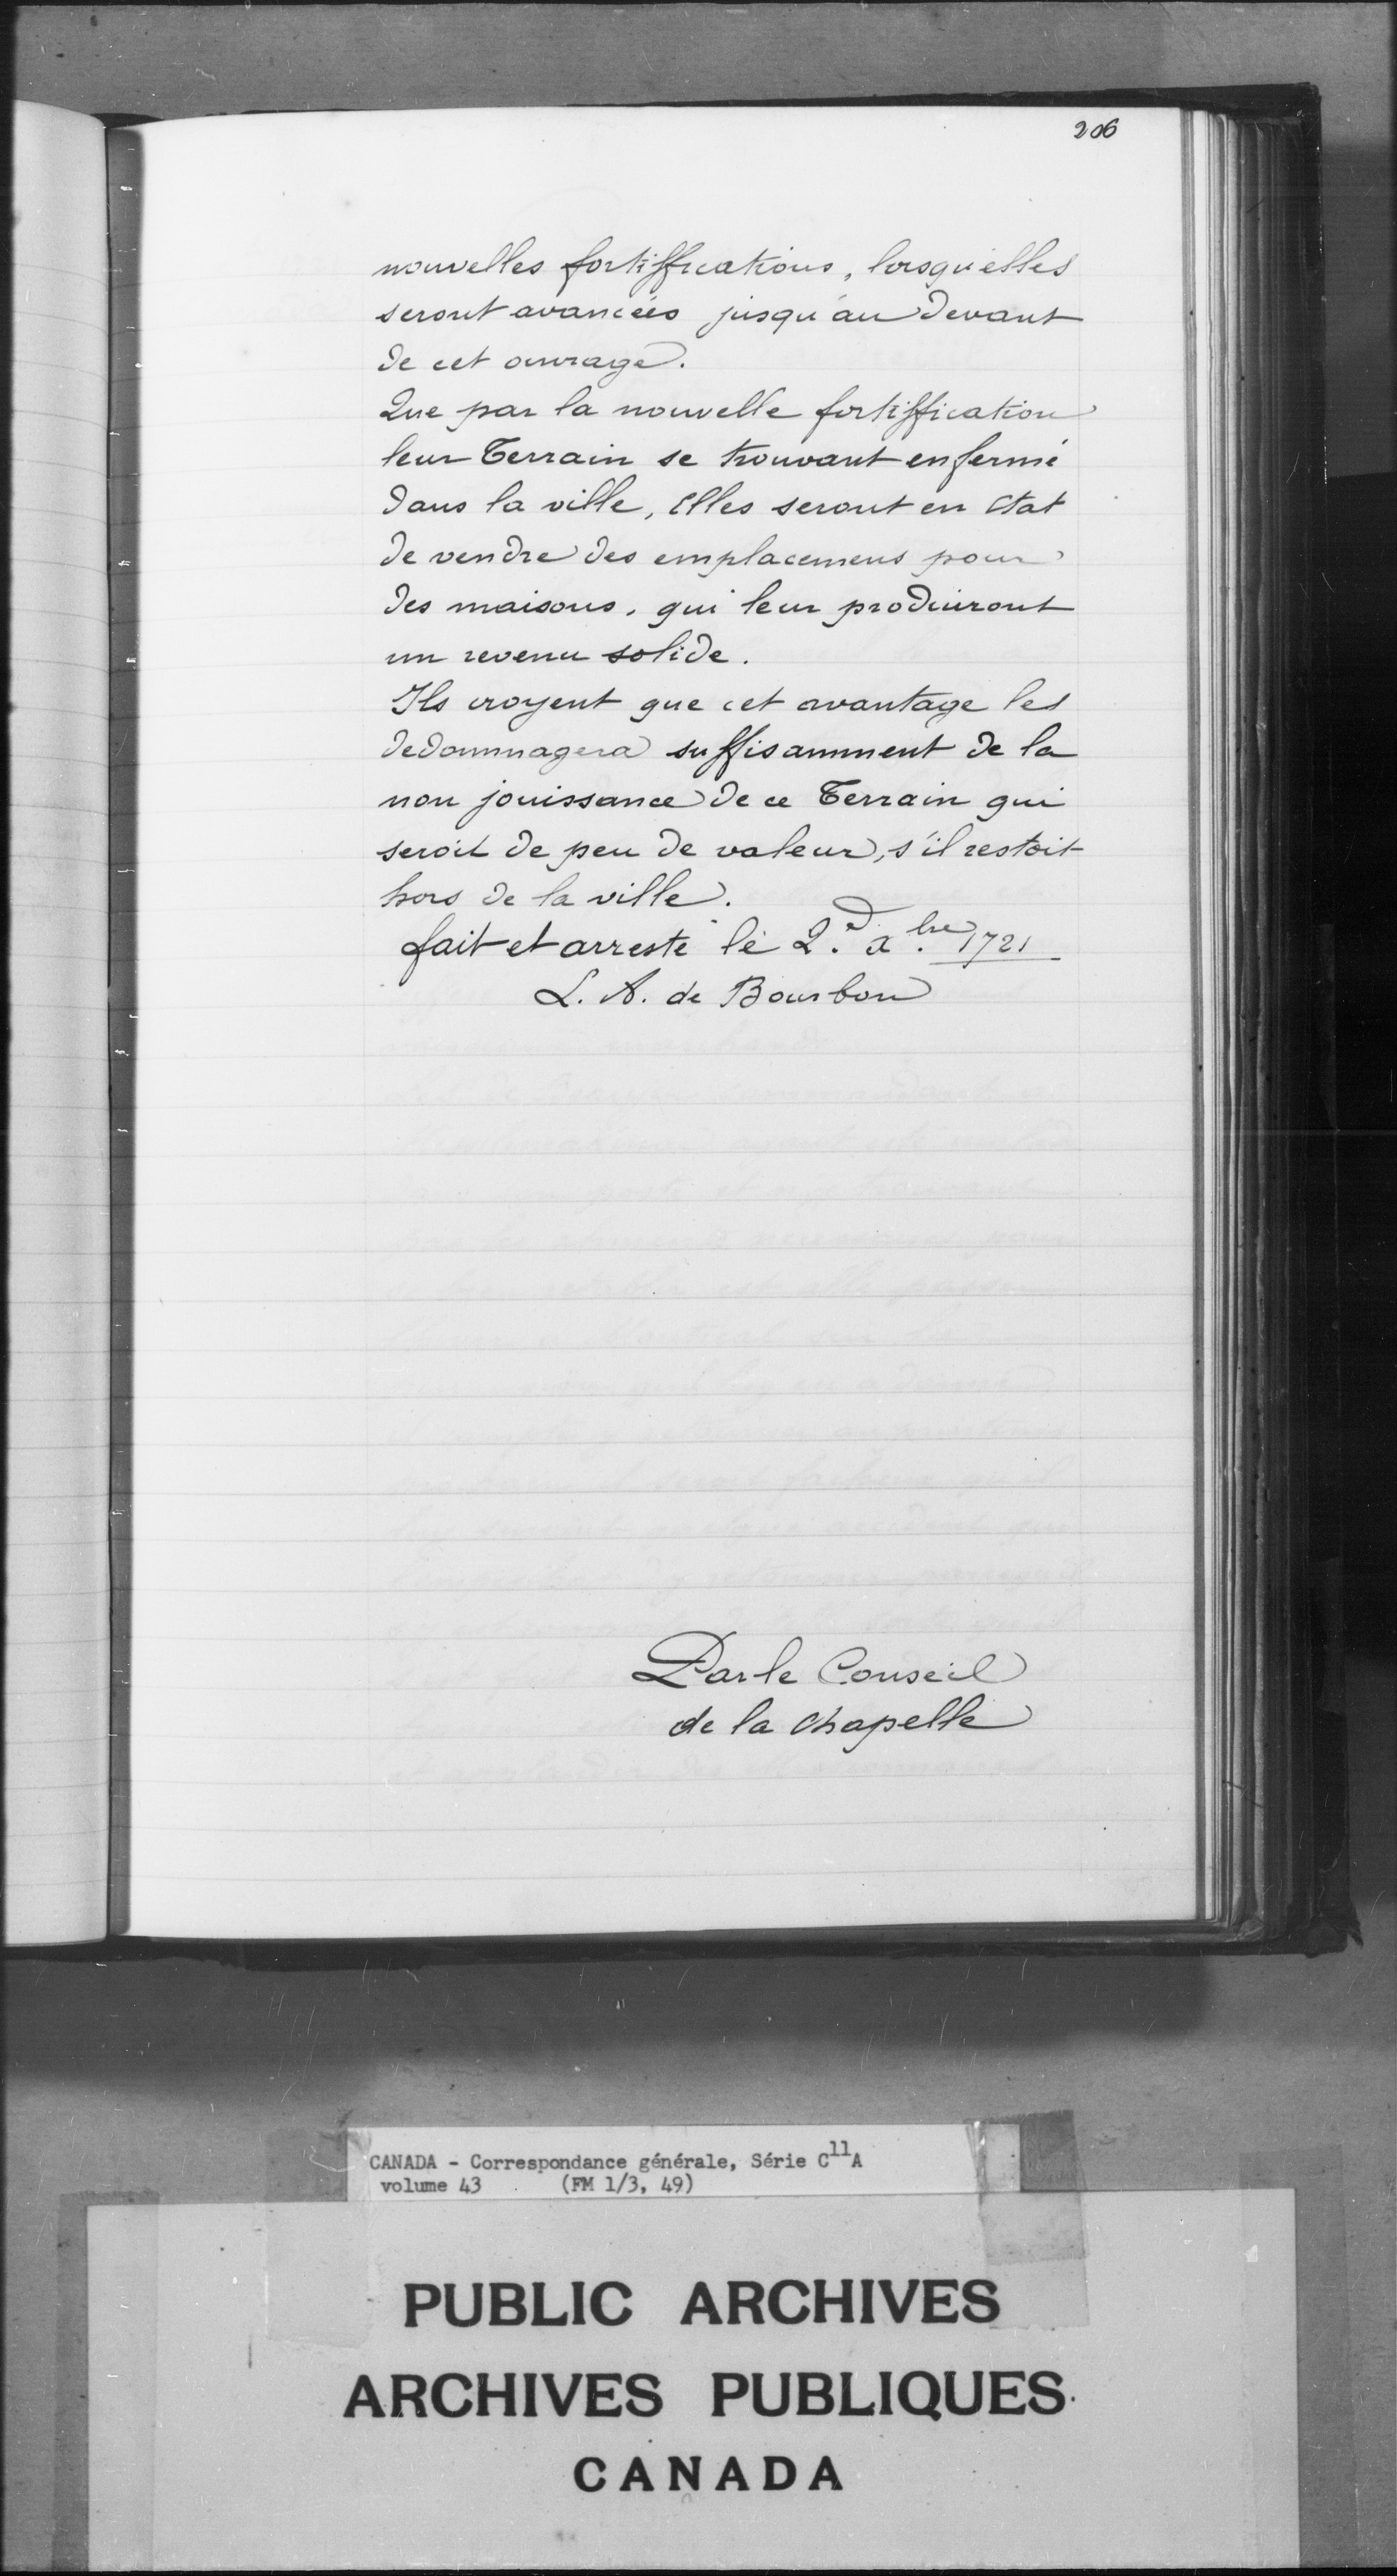 206
nouvelles fortiffications, lorsqu'elles
seront avancées jusqu'au devant
de cet ouvrage.
Que par la nouvelle fortiffication
leur Terrain se trouvant enfermé
dans la ville, Elles seront en Etat
de vendre des emplacemens pour
des maisons, qui leur produiront
un revenu solide.
Ils croyent que cet avantage les
dedommagera suffisamment de la
non jouissance de ce Terrain qui
seroit de peu de valeur, s'il restoit
hors de la ville.
fait et arresté le 2.d xbre 1721
L. A. de Bourbon
Par le Conseil
de la Chapelle
CANADA - Correspondance générale, Série C11A
volume 43 (FM 1/3, 49)
PUBLIC ARCHIVES
ARCHIVES PUBLIQUES
CANADA